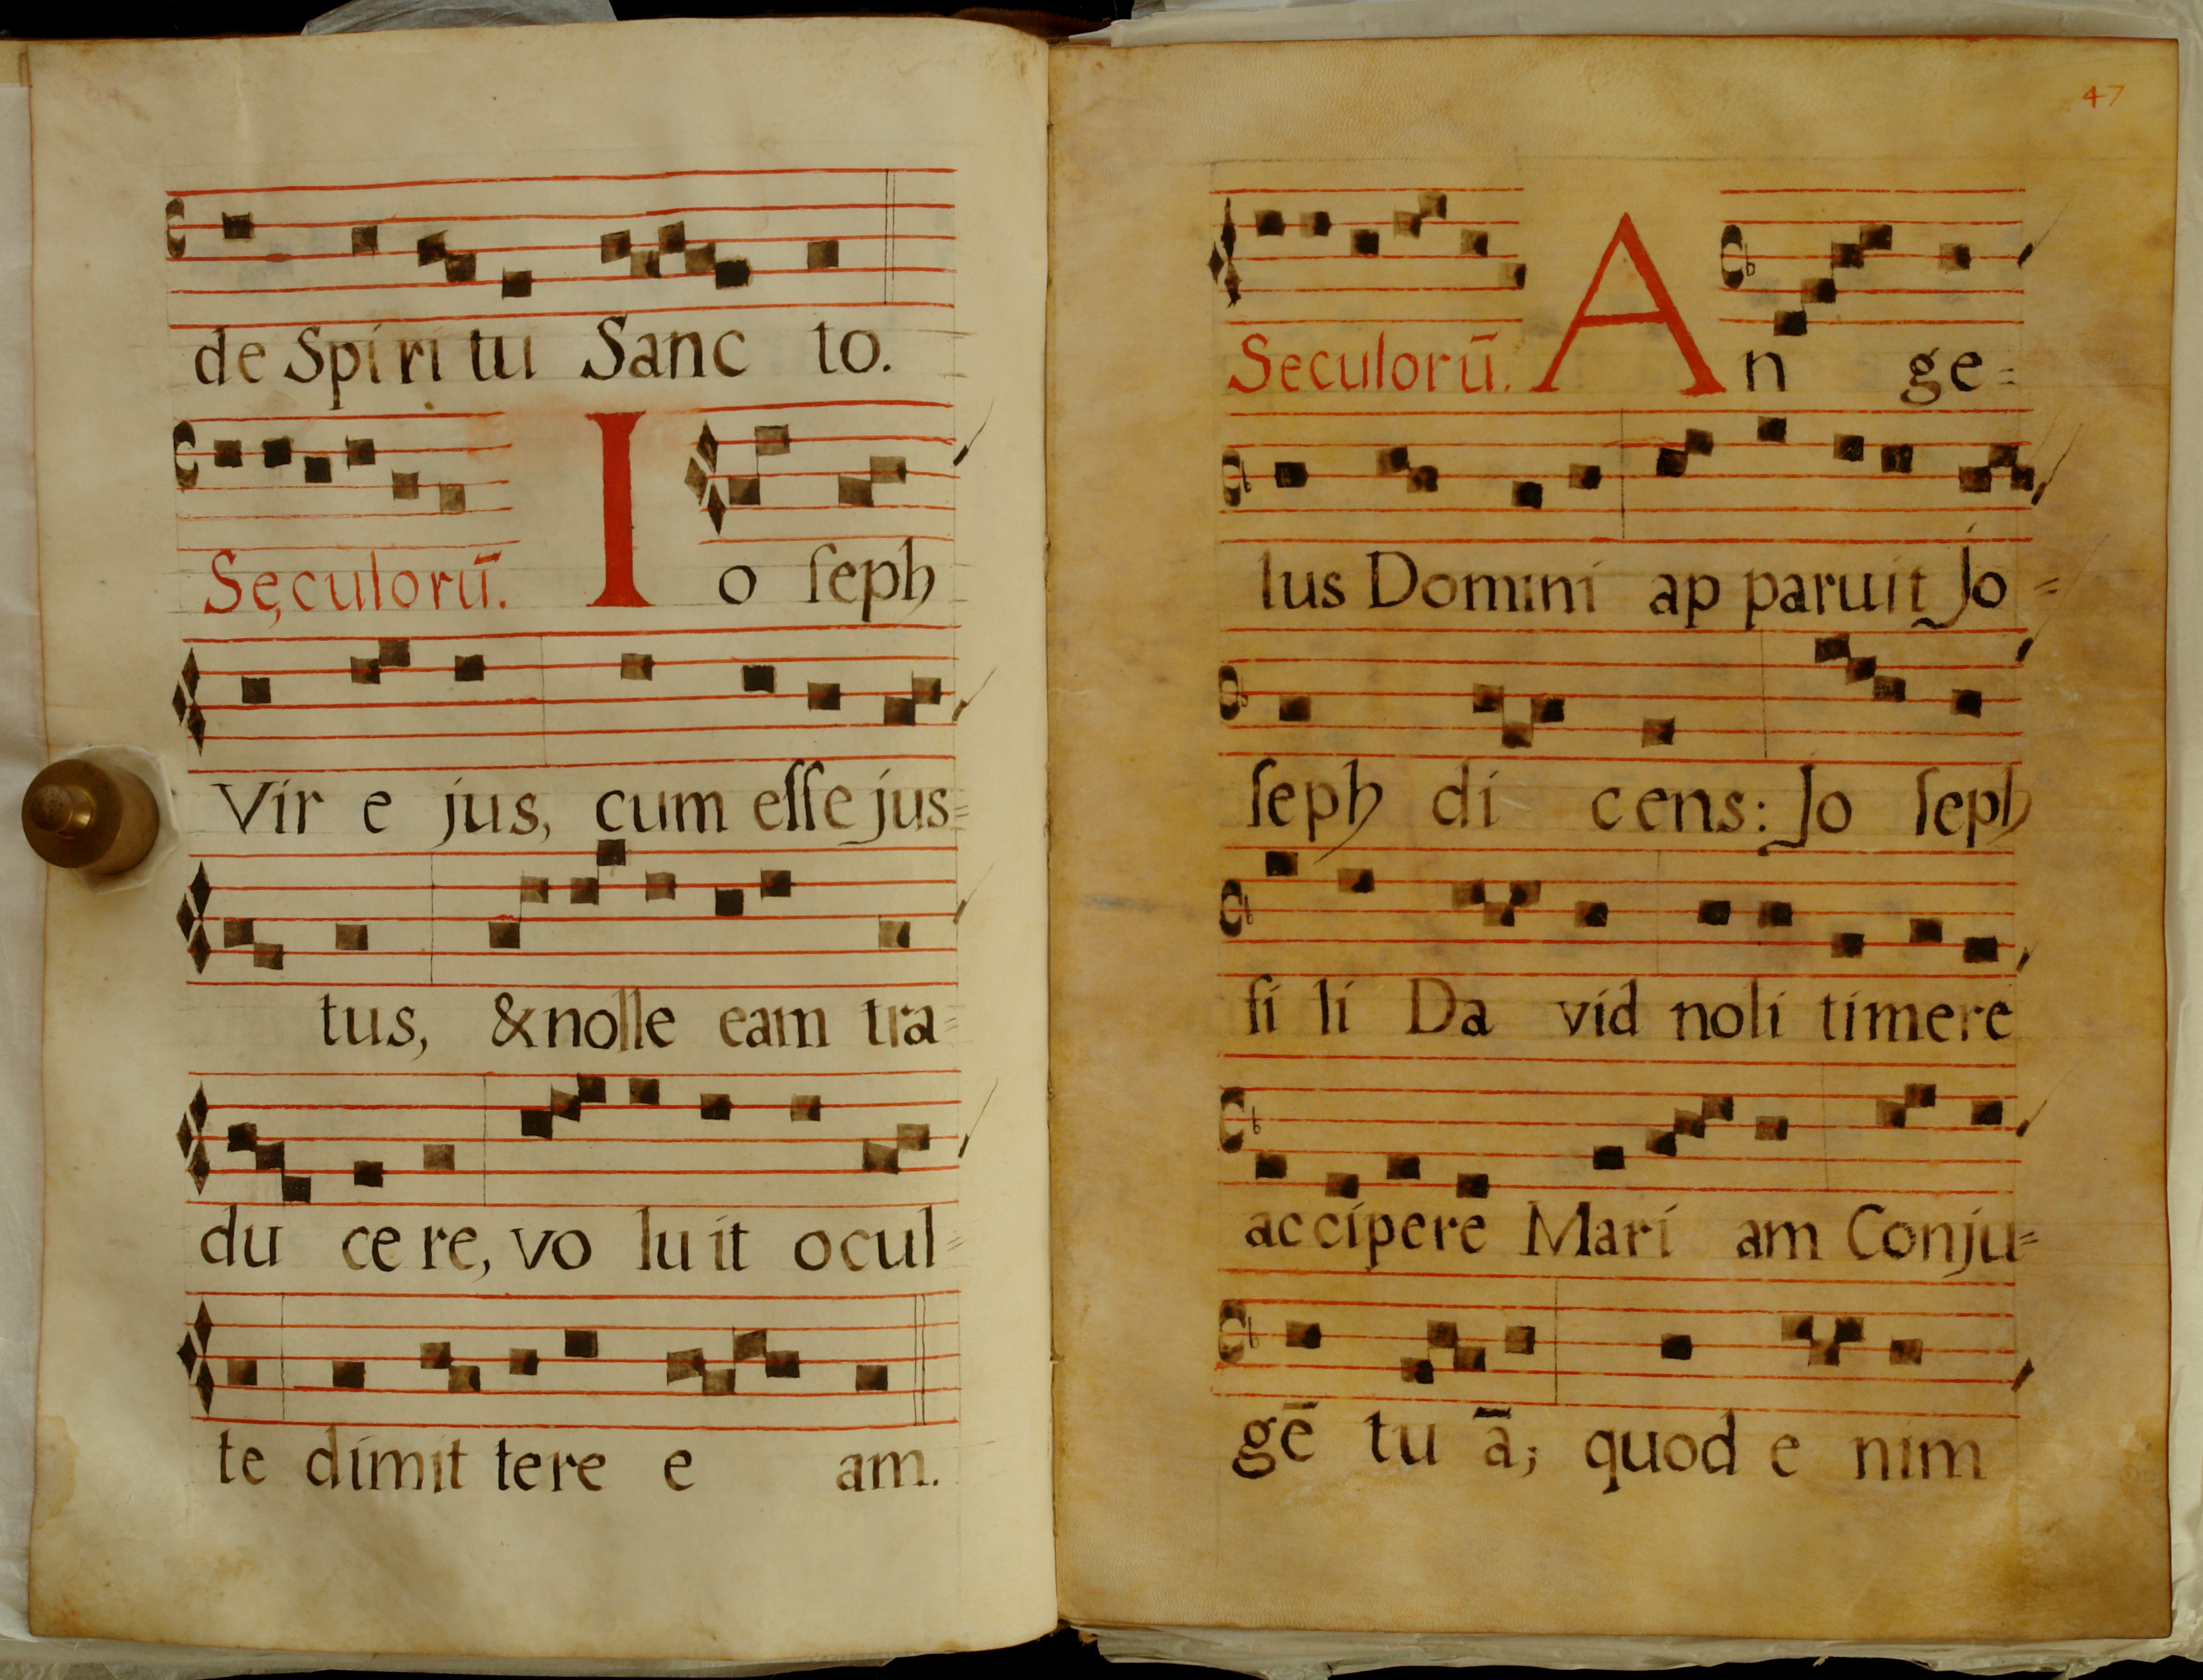 de Spi ri tu Sanc to.
Seculorū. I o ſeph
Vir e jus, cum eſſe jus=
tus, & nolle eam tra=
du ce re, vo lu it ocul=
te dimit tere e am.
47
Seculorū. A n ge=
lus Domini ap paruit Jo=
ſeph di cens: Jo ſeph
fi li Da vid noli timere
accipere Mari am Conju=
gē tu ā; quod e nim